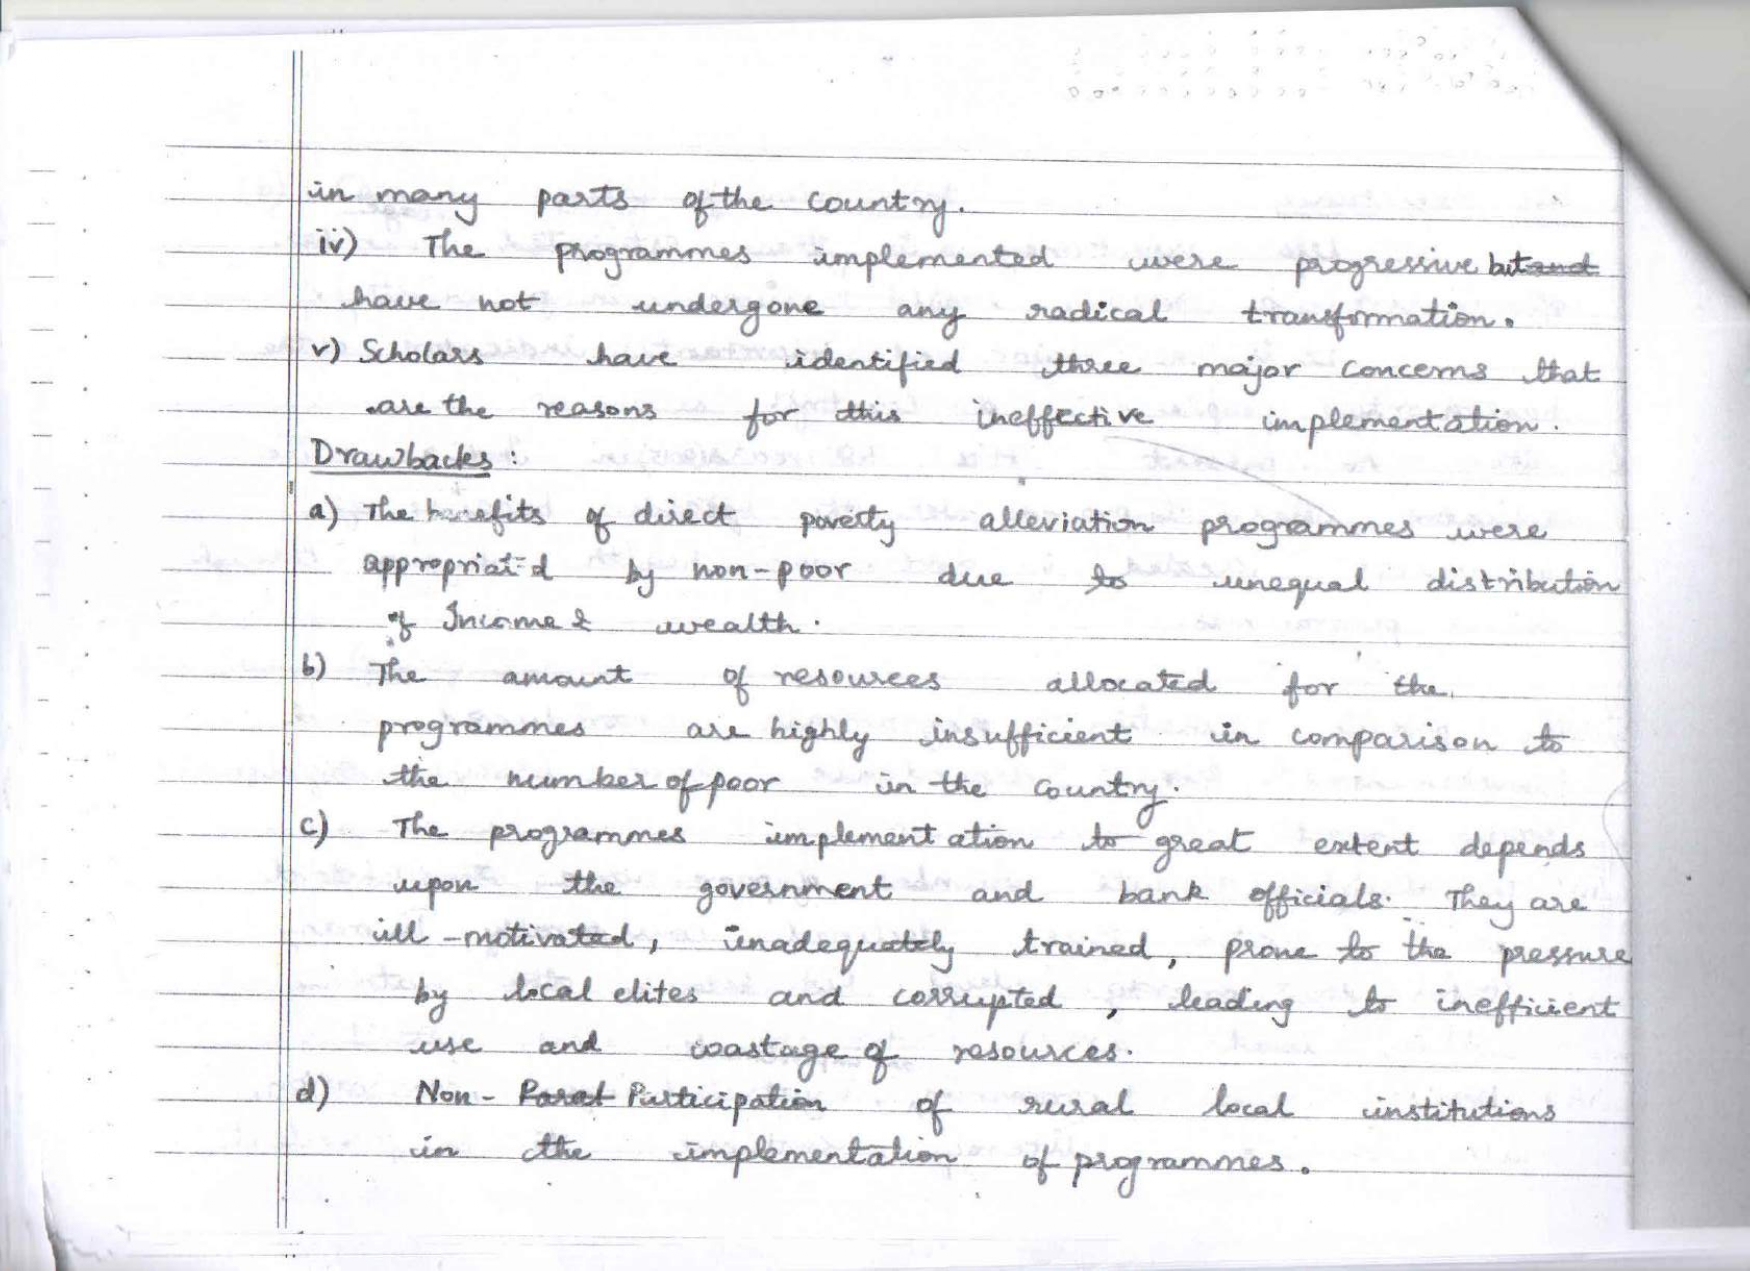 in many parts of the country.
iv) The programmes implemented were progressive but and
have not undergone any radical transformation.
v) Scholars have identified three major concerns that
are the reasons for this ineffective implementation.
Drawbacks :
a) The benefits of direct poverty alleviation programmes were
appropriated by non-poor due to unequal distribution
of Income & wealth.
b) The amount of resources allocated for the
programmes are highly insufficient in comparison to
the number of poor in the country.
c) The programmes implementation to great extent depends
upon the government and bank officials. They are
ill-motivated, inadequately trained, prone to the pressure
by local elites and corrupted, leading to inefficient
use and wastage of resources.
d) Non- Participation of rural local institutions
in the implementation of programmes.